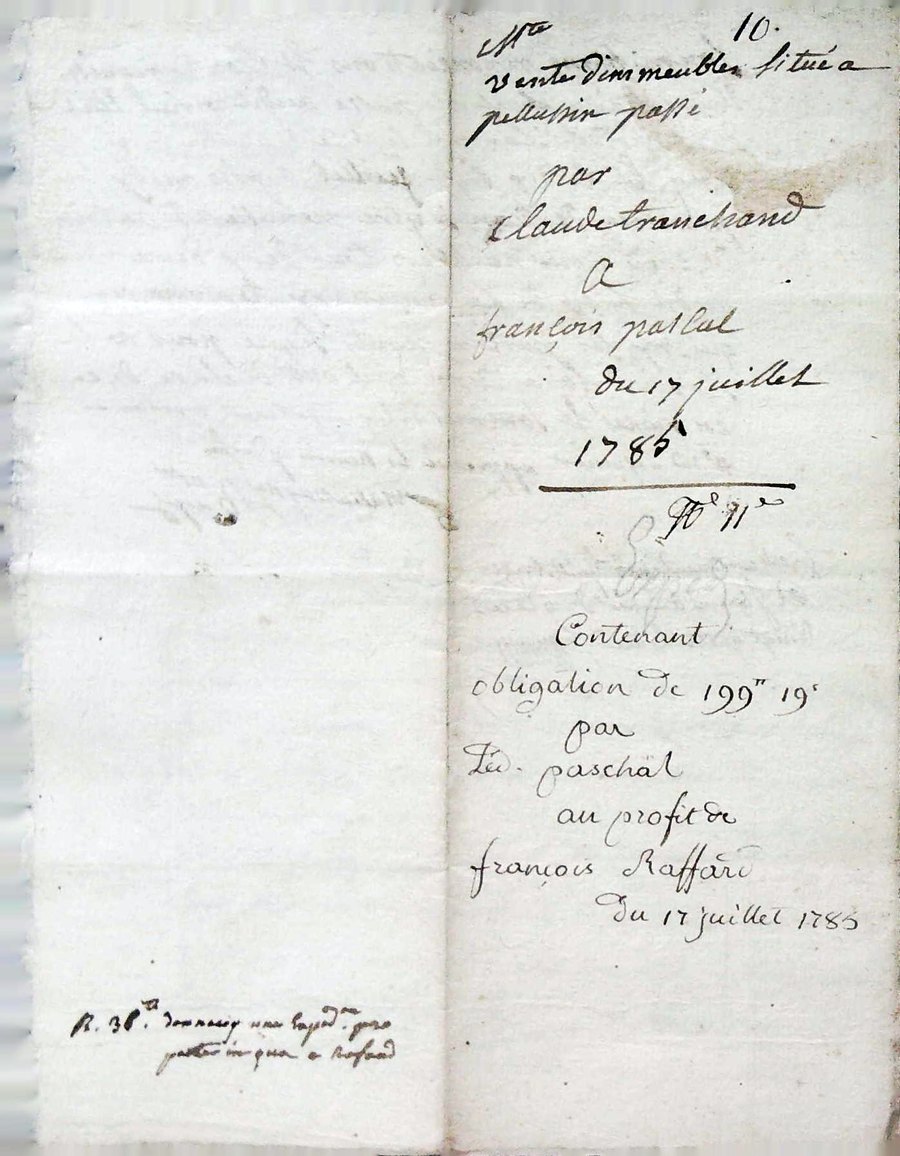 10.
vente dimmeubles situé a
pellussin passé
par
Claude tranchand
A
françois pascal
du 17 juillet
1785
Contenant
obligation de 199ᵗᵗ 19ˢ
par
Led. paschal
au profit de
françois Raffard
du 17 juillet 1785
R. 3ᵗᵗ. donné une Exped.ⁿ pro
parte in qua a Rafard